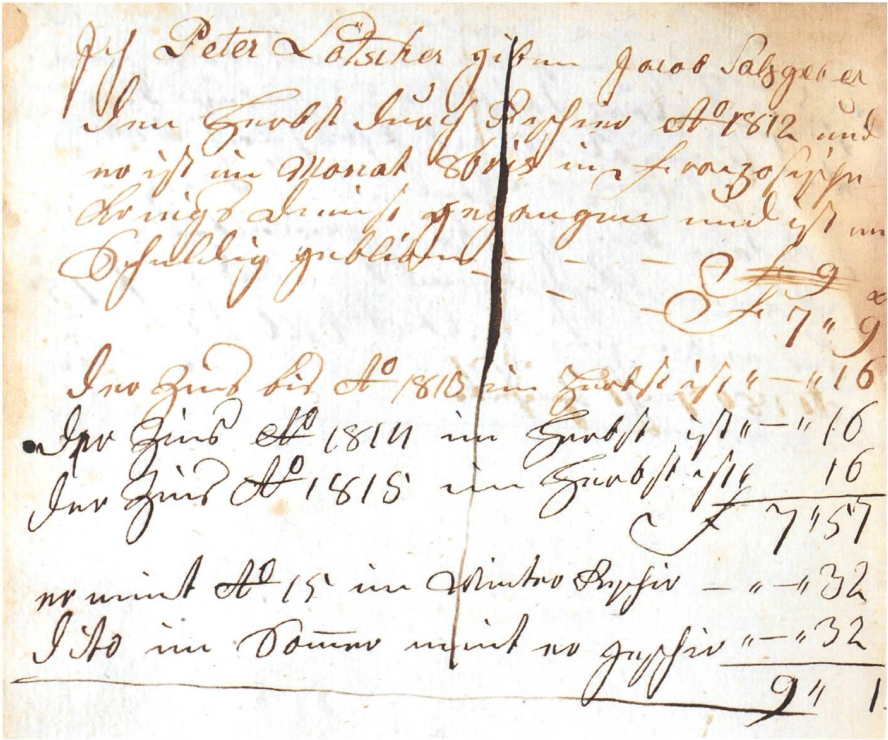 Ich Peter Lötscher giben Jacob Salzgeber
den Herbst durch Geschier Aº 1812 und
er ist im Monat 8bris in französische
Königs dienst gegangen und ist
Schuldig gebliben — — — f 9
— — f 7 " 9
der Zins bis Aº 1813 im Herbst ist " — " 16
der Zins Aº 1814 im Herbst ist " — " 16
der Zins Aº 1815 im Herbst ist " 16
f 7 " 57
er nimt Aº 15 im Winter Geschir — " — " 32
dito im Som̅er nimt er geschir " — " 32
9 " 1